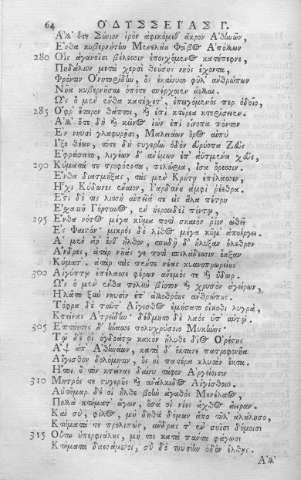 64 ΟΔΥΣΣΕΙΑΣ Γ.
Ἀλλ' ὅτε Σούνιον ἱρὸν ἀφικόμεθ' ἄκρον Ἀθηνῶν,
Ἔνθα κυβερνήτην Μενελάου Φοῖβος Ἀπόλλων
280 Οἷς ἀγανοῖσι βέλεσσιν ἐποιχόμενος κατέπεφνε,
Πηδάλιον μετὰ χερσὶ θεούσης νηὸς ἔχοντα,
Φρόντιν Ὀνητορίδην, ὃς ἐκαίνυτο φῦλ' ἀνθρώπων
Νῆα κυβερνῆσαι ὁπότε σπέρχοιεν ἄελλαι.
Ὣς ὁ μὲν ἔνθα κατέσχετ', ἐπειγόμενός περ ὁδοῖο,
285 Ὄφρ' ἕταρον θάπτοι, καὶ ἐπὶ κτέρεα κτερίσειεν.
Ἀλλ' ὅτε δὴ καὶ κεῖνος ἰὼν ἐπὶ οἴνοπα πόντον
Ἐν νηυσὶ γλαφυρῇσι, Μαλειάων ὄρος αἰπὺ
Ἷξε θέων, τότε δὴ στυγερὴν ὁδὸν εὐρύοπα Ζεὺς
Ἐφράσατο, λιγέων δ' ἀνέμων ἐπ' ἀϋτμένα χεῦε,
290 Κύματά τε τροφόεντα, πελώρια, ἶσα ὄρεσσιν.
Ἔνθα διατμήξας, τὰς μὲν Κρήτῃ ἐπέλασσεν,
Ἧχι Κύδωνες ἔναιον, Ἰαρδάνου ἀμφὶ ῥέεθρα.
Ἔστι δέ τις λισσὴ αἰπεῖά τε εἰς ἅλα πέτρη
Ἐσχατιῇ Γόρτυνος, ἐν ἠεροειδέϊ πόντῳ,
295 Ἔνθα νότος μέγα κῦμα ποτὶ σκαιὸν ῥίον ὠθεῖ
Ἐς Φαιστὸν· μικρὸς δὲ λίθος μέγα κῦμ' ἀποέργει.
Αἱ μὲν ἄρ' ἔνθ' ἦλθον, σπουδῇ δ' ἤλυξαν ὄλεθρον
Ἄνδρες, ἀτὰρ νῆάς γε ποτὶ σπιλάδεσσιν ἔαξαν
Κύματ'· ἀτὰρ τὰς πέντε νέας κυανοπρωρείους
300 Αἰγύπτῳ ἐπέλασσε φέρων ἄνεμός τε καὶ ὕδωρ.
Ὣς ὁ μὲν ἔνθα πολὺν βίοτον καὶ χρυσὸν ἀγείρων,
Ἠλᾶτο ξὺν νηυσὶν ἐπ' ἀλλοθρόους ἀνθρώπους.
Τόφρα δὲ ταῦτ' Αἴγισθος ἐμήσατο οἴκοθι λυγρά,
Κτείνας Ἀτρείδην· δέδμητο δὲ λαὸς ὑπ' αὐτῷ.
305 Ἑπτάετες δ' ἤνασσε πολυχρύσοιο Μυκήνης·
Τῷ δέ οἱ ὀγδοάτῳ κακὸν ἤλυθε δῖος Ὀρέστης
Ἂψ ἀπ' Ἀθηνάων, κατὰ δ' ἔκτανε πατροφονῆα
Αἴγισθον δολόμητιν, ὅς οἱ πατέρα κλυτὸν ἔκτα.
Ἤτοι ὁ τὸν κτείνας δαίνυ τάφον Ἀργείοισιν
310 Μητρός τε στυγερῆς καὶ ἀνάλκιδος Αἰγίσθοιο.
Αὐτῆμαρ δέ οἱ ἦλθε βοὴν ἀγαθὸς Μενέλαος,
Πολλὰ κτήματ' ἄγων, ὅσα οἱ νέες ἄχθος ἄειραν.
Καὶ σὺ, φίλος, μὴ δηθὰ δόμων ἄπο τῆλ' ἀλάλησο,
Κτήματά τε προλιπὼν, ἄνδρας τ' ἐν σοῖσι δόμοισι
315 Οὕτω ὑπερφιάλους, μή τοι κατὰ πάντα φάγωσι
Κτήματα δασσάμενοι, σὺ δὲ τηϋσίην ὁδὸν ἔλθῃς.
Ἀλλ'